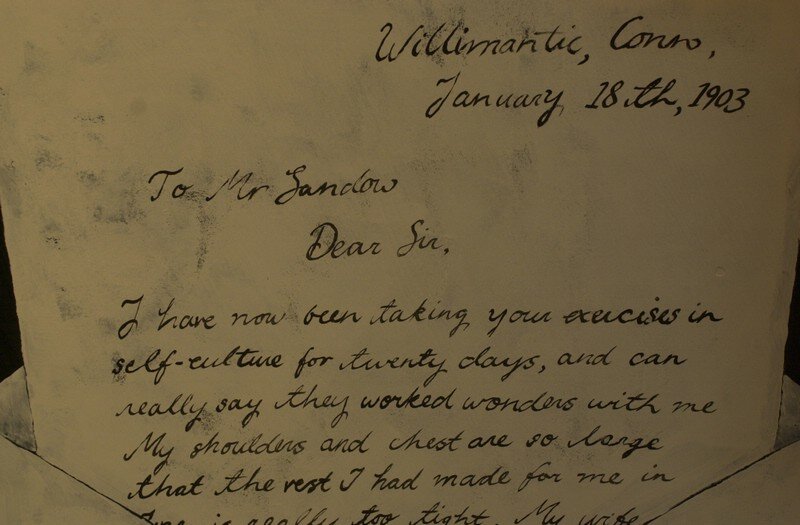 Willimantic, Conn,
January 18th, 1903
To Mr Sandow
Dear Sir,
I have now been taking your exercises in
self-culture for twenty days, and can
really say they worked wonders with me
My shoulders and chest are so large
that the vest I had made for me in
June is really too tight. My wife